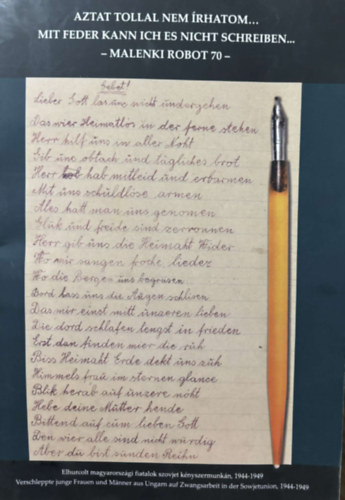 AZTAT TOLLAL NEM ÍRHATOM...
MIT FEDER KANN ICH ES NICHT SCHREIBEN...
– MALENKI ROBOT 70 –
Gebet!
Lieber Gott las uns nicht undergehen
Das wier Heimatlos in der ferne stehen
Herr hilf uns in aller Noht
Gib une obtach und tägliches brot
Herr hab mitleid und erbarmen
Mit uns schuldlose armen
Ales hatt man uns genomen
Glük und freide sind zerronnen
Herr gib uns die Heimaht Wider
Wo mir sangen frohe lieder
Wo die Berges uns begrüsen
Dord lass uns die Augen schliren
Das mir einst mitt unseren lieben
Die dord schlafen lengst in frieden
Erst dan finden mier die ruh
Biss Heimaht Erde dekt uns zuh
Himmels frau im sternen glanse
Blik herab auf unsere noht
Hebe deine Mütter hende
Bittend auf zum lieben Gott
Den wier alle sind nicht würdig
Aber du bist unsden Reihn
Elhurcolt magyarországi fiatalok szovjet kényszermunkán, 1944-1949
Verschleppte junge Frauen und Männer aus Ungarn auf Zwangsarbeit in der Sowjetunion, 1944-1949